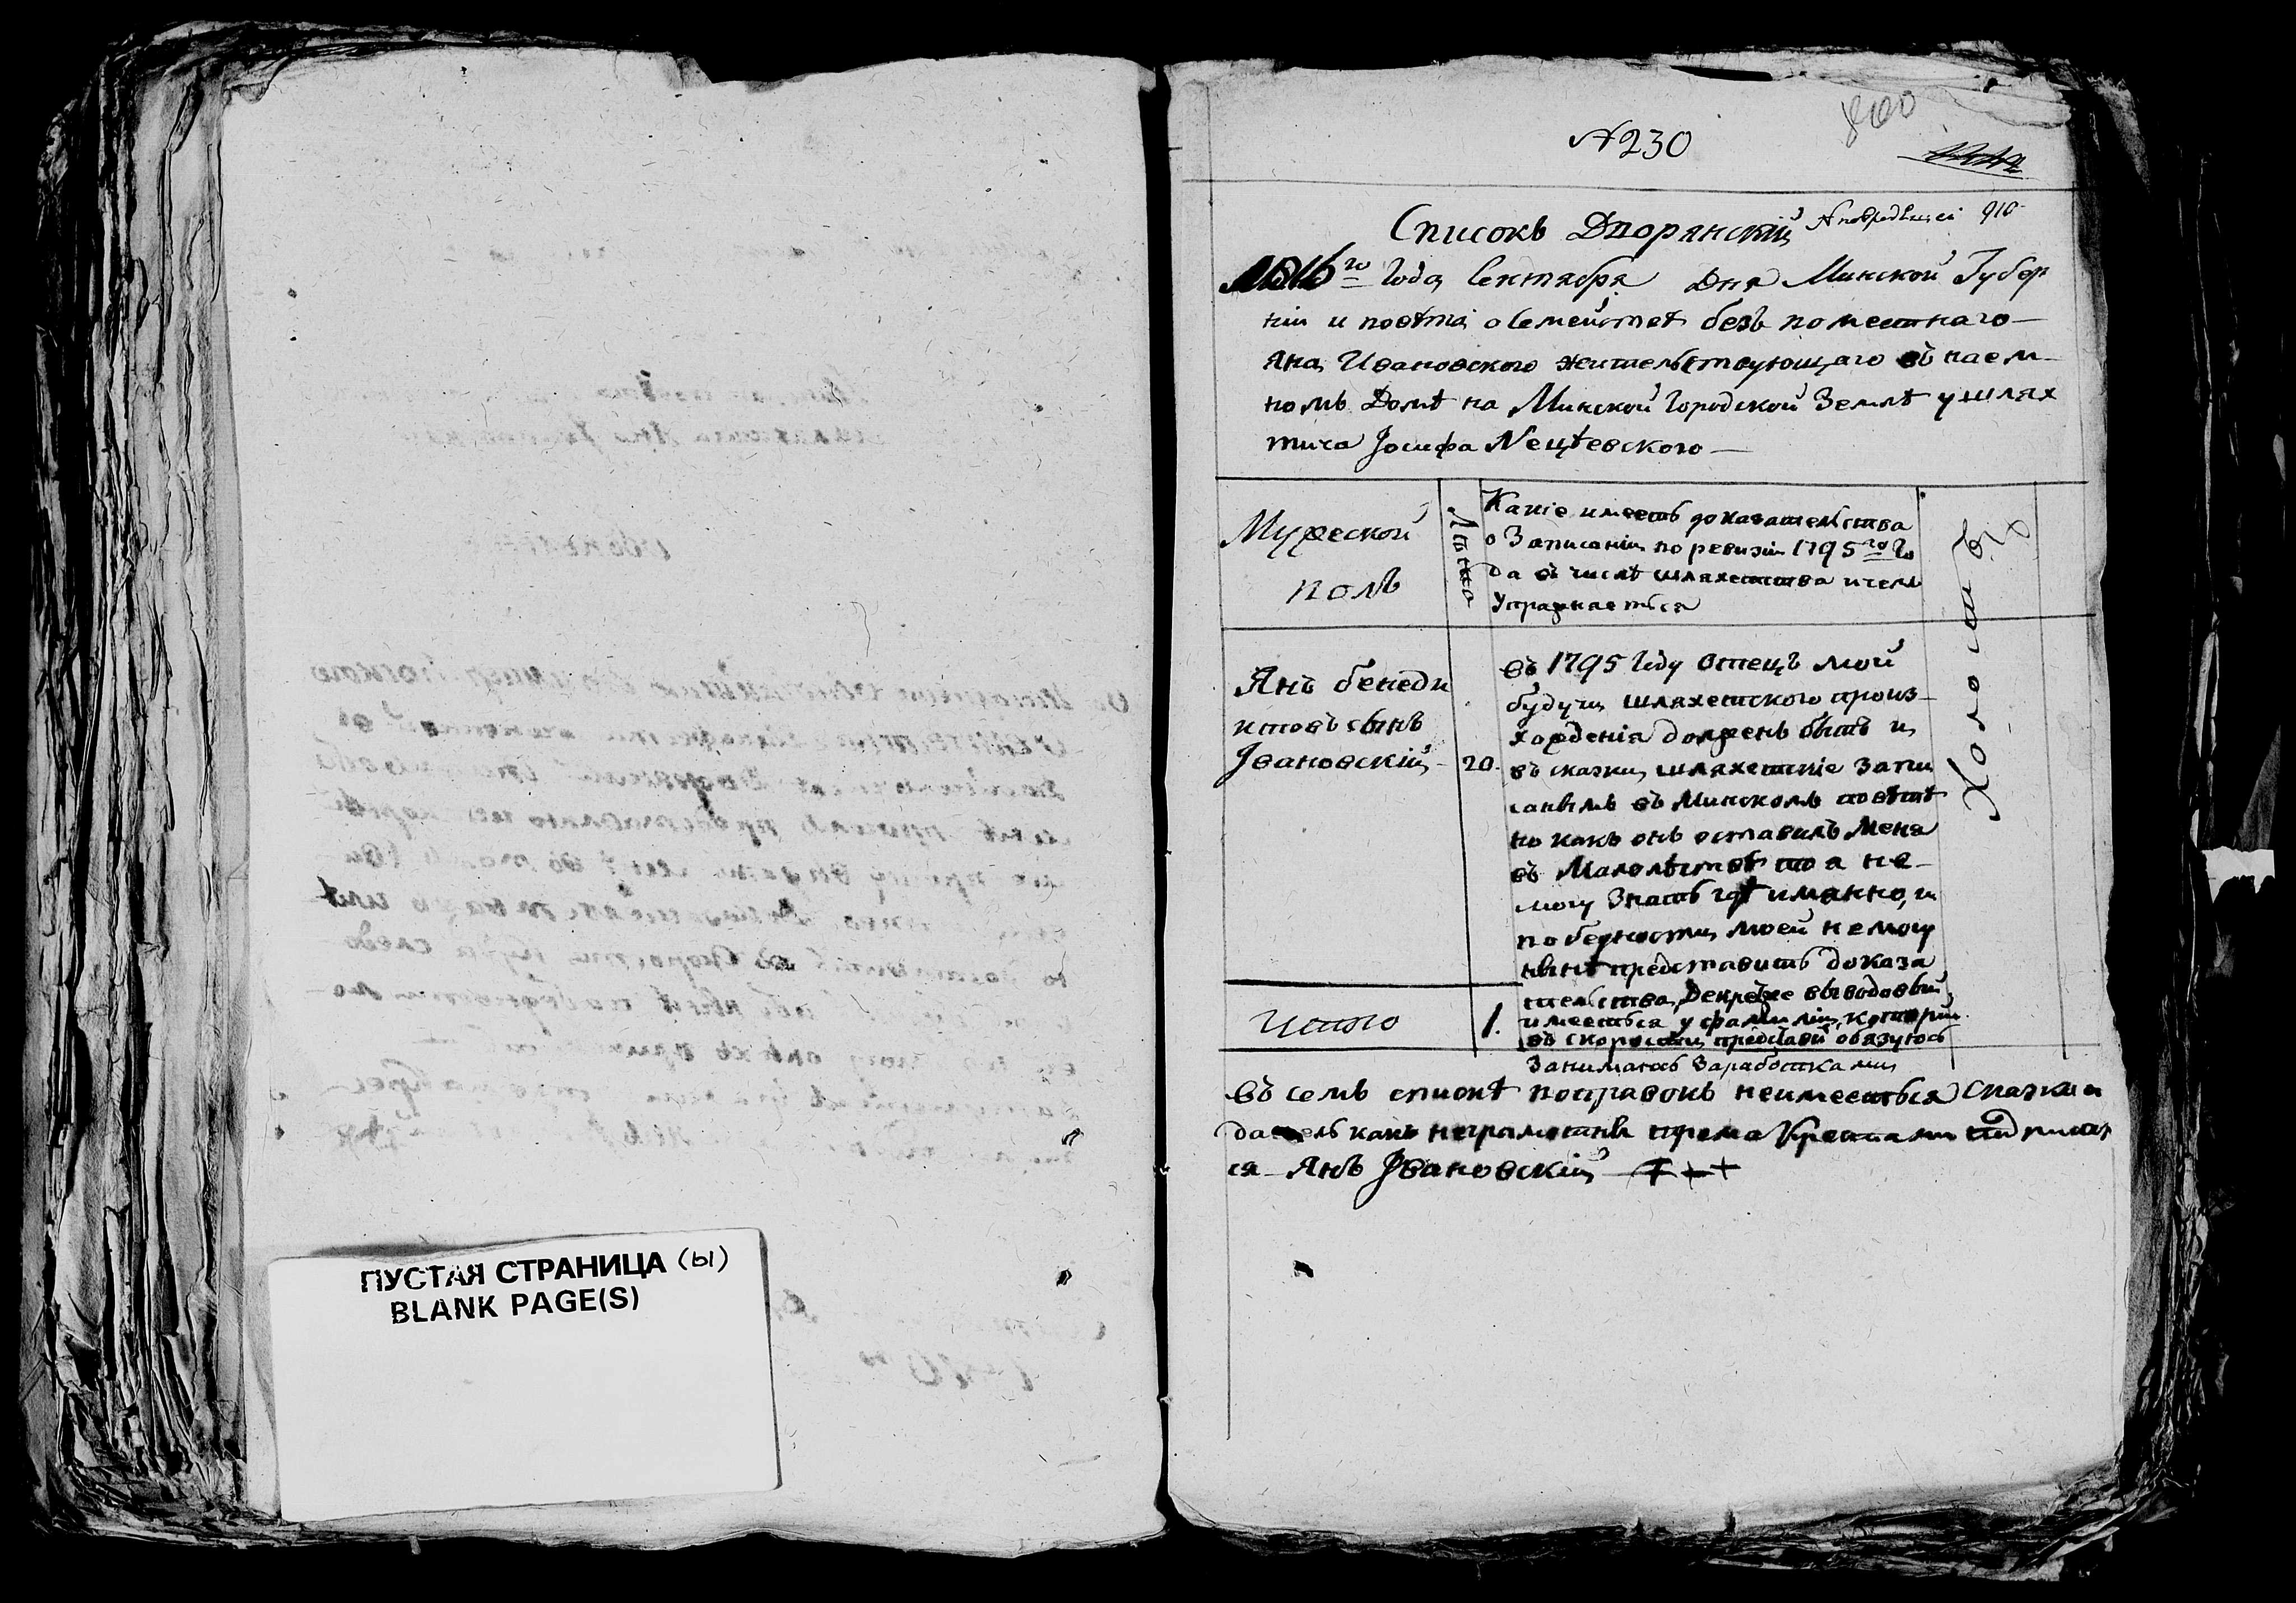 ПУСТАЯ СТРАНИЦА (ы)
BLANK PAGE(S)
№ 230
800
Списокъ Дворянскій
910
1816го Года Сентября Дня Минской Губер
ніи и повѣта о семействѣ безъ поместнаго
Яна Ивановского жительствующаго въ наем
номъ Домѣ на Минской Городской Землѣ у шлях
тича Іосифа
Мужеской
полъ
Лѣта
Какіе имеетъ доказательства
о Записаніи по ревизіи 1795го Го
да въ числѣ шляхетства и чемъ
Упражнается
Холостъ
Янъ бенеди
ктовъ сынъ
Івановскій
20.
въ 1795 Году отецъ мой
будучи шляхетского произ
хожденія долженъ быть и
въ сказки шляхетскіе запи
санымъ въ Минскомъ повѣтѣ
но какъ онъ оставилъ меня
въ Малолѣтствѣ то я не
могу знать гдѣ имянно, и
по бедности моей не могу
нынѣ представить доказа
тельства, Декретже выводовый
имеется у фамиліи, которій
въ скорости обязуюсь
Заниматсь Заработками
Итого
1.
въ семъ спискѣ поправокъ неимеется Сказки
датель какъ неграмотны трема Крестами подписал
ся Янъ Івановскій + + +